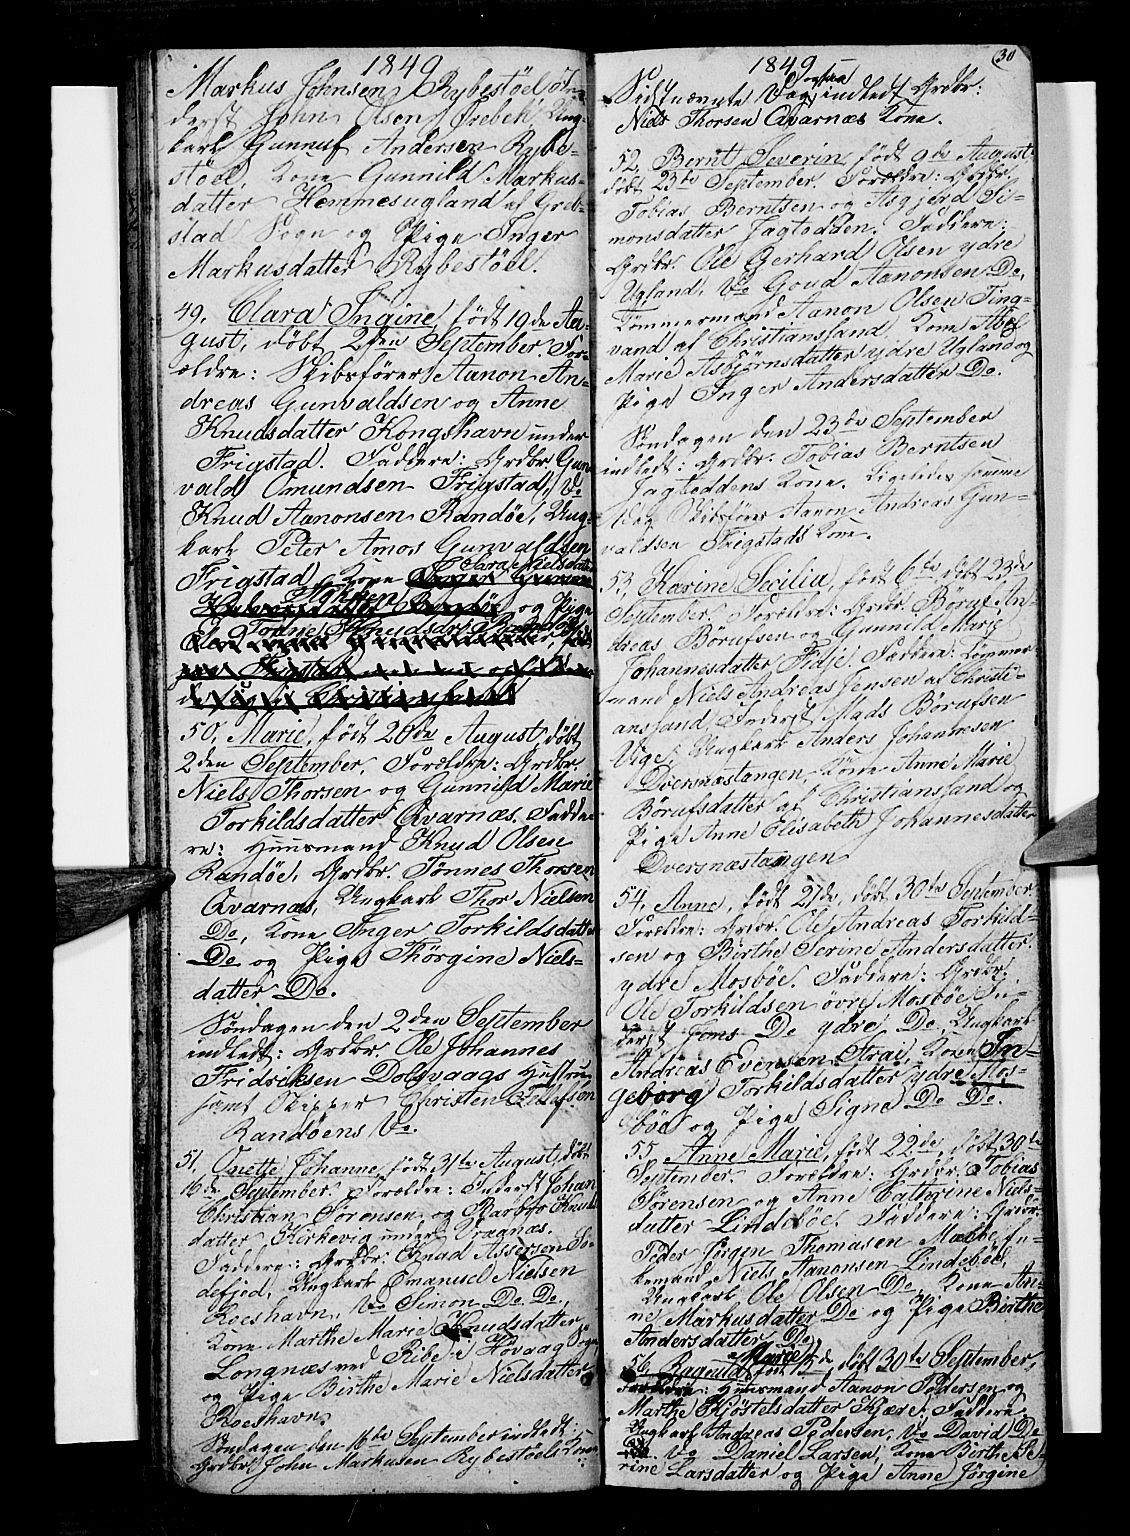 1849
Markus Johnsen Rybestöel, In-
derst John Olsen Örebek, Ung-
karl Gunnuf Andersen Rybe-
stöel, Kone Gunnild Markus-
datter Hemmesugland af Greb-
stad Sogn og Pige Inger
Markusdatter Rybestöel.
49, Clara Ingine, født 19de Au-
gust, døbt 2den September. For-
ældre: Skibsfører Aanon An-
dreas Gunvaldsen og Anne
Knudsdatter Kongshavn under
Frigstad. Faddere: Grdbr. Gun-
vald Omundsen Frigstad, Do
Knud Aanonsen Randöe, Ung-
karl Peter Amos Gunvaldsen
Frigstad, Kone Sara Nielsdatter
og Pige
Tonne Knudsdr. Randöe
50, Marie, født 20de August, døbt
2den September. Forældre: Grdbr.
Niels Thorsen og Gunnild Marie
Torkildsdatter Qvarnæs. Fadde-
re: Huusmand Knud Olsen
Randöe, Grdbr. Tønnes Thorsen
Qvarnæs, Ungkarl Thor Nielsen
Do, Kone Inger Torkildsdatter
Do og Pige Thörgine Niels-
datter Do.
Søndagen den 2den September
indledt: Grdbr. Ole Johannes
Fridriksen Dolsvaags Hustru
samt Skipper Christen Ellefsen
Randöens Do.
51, Onette Johanne, født 31te August, døbt
16de September. Forældre: Inderst Johan
Christian Sørensen og Barbro Knuds-
datter Kirkevig under Vragnæs.
Faddere: Grdbr. Knud Assersen
Ungkarl Emanuel Nielsen
Roeshavn, Do Simon Do Do,
Kone Marthe Marie Knudsdatter
Longnæs ved Ribe i Høvaag Sogn
og Pige Birthe Marie Nielsdatter
Roeshavn.
Søndagen den 16de September indledt:
Grdbr. John Markusen Rybestöels Kone.
30
1849
Sidstnævnte Dag ogsaa indledt Grdbr.
Niels Thorsen Qvarnæs Kone.
52, Bernt Severin, født 9de August
døbt 23de September. Forældre: Grdbr.
Tobias Berntsen og Asgjerd Si-
monsdatter Jagtodden. Faddere:
Grdbr. Ole Gerhard Olsen ydre
Ugland, Do Goud Aanonsen Do,
Tømmermand Aanon Olsen Ting-
vand af Christiansand, Kone Abel
Marie Asbjörnsdatter ydre Ugland og
Pige Inger Andersdatter Do.
Søndagen den 23de September
indledt: Grdbr. Tobias Berntsen
Jagtoddens Kone. Ligeledes samme
Dag Skibsfører Aanon Andreas Gun-
valdsen Frigstads Kone.
53, Karine Secilia, født 6te døbt 23de
September. Forældre: Grdbr. Böruf An-
dreas Börufsen og Gunnild Marie
Johannesdatter Fidje. Faddere: Tømmer-
mand Niels Andreas Jensen af Christi-
ansand, Inderst Mads Börufsen
Vige, Ungkarl Anders Johannesen
Dversnæstangen, Kone Anne Marie
Börufsdatter af Christiansand og
Pige Anne Elisabeth Johannesdatter
Dversnæstangen
54, Anne, født 21de, døbt 30te September.
Forældre: Grdbr. Ole Andreas Torkild-
sen og Birthe Serine Andersdatter
ydre Mosböe. Faddere: Grdbr.
Ole Torkildsen övre Mosböe, In-
derst Jens Do ydre Do, Ungkarl
Andreas Evensen Strai, Kone In-
geborg Torkildsdatter ydre Mos-
böe og Pige Signe Do Do.
55, Anne Marie, født 22de, døbt 30te
September. Forældre: Grdbr. Tobias
Sørensen og Anne Cathrine Niels-
datter Lindeböe. Faddere: Grdbr.
Peder Jörgen Thomasen Mæbbe, En-
kemand Niels Aanonsen Lindeböe,
Ungkarl Ole Olsen Do, Kone An-
ne Markusdatter Do og Pige Birthe
Andersdatter Do.
56, Ragnild Marie, født de, døbt 30te September,
Forældre: Huusmand Aanon Pedersen og
Marthe Kjöstelsdatter Kjære. Faddere:
Ungkarl Andreas Pedersen, Do David Do
Do Daniel Larsen, Kone Birthe Se-
rine Larsdatter og Pige Anne Jörgine